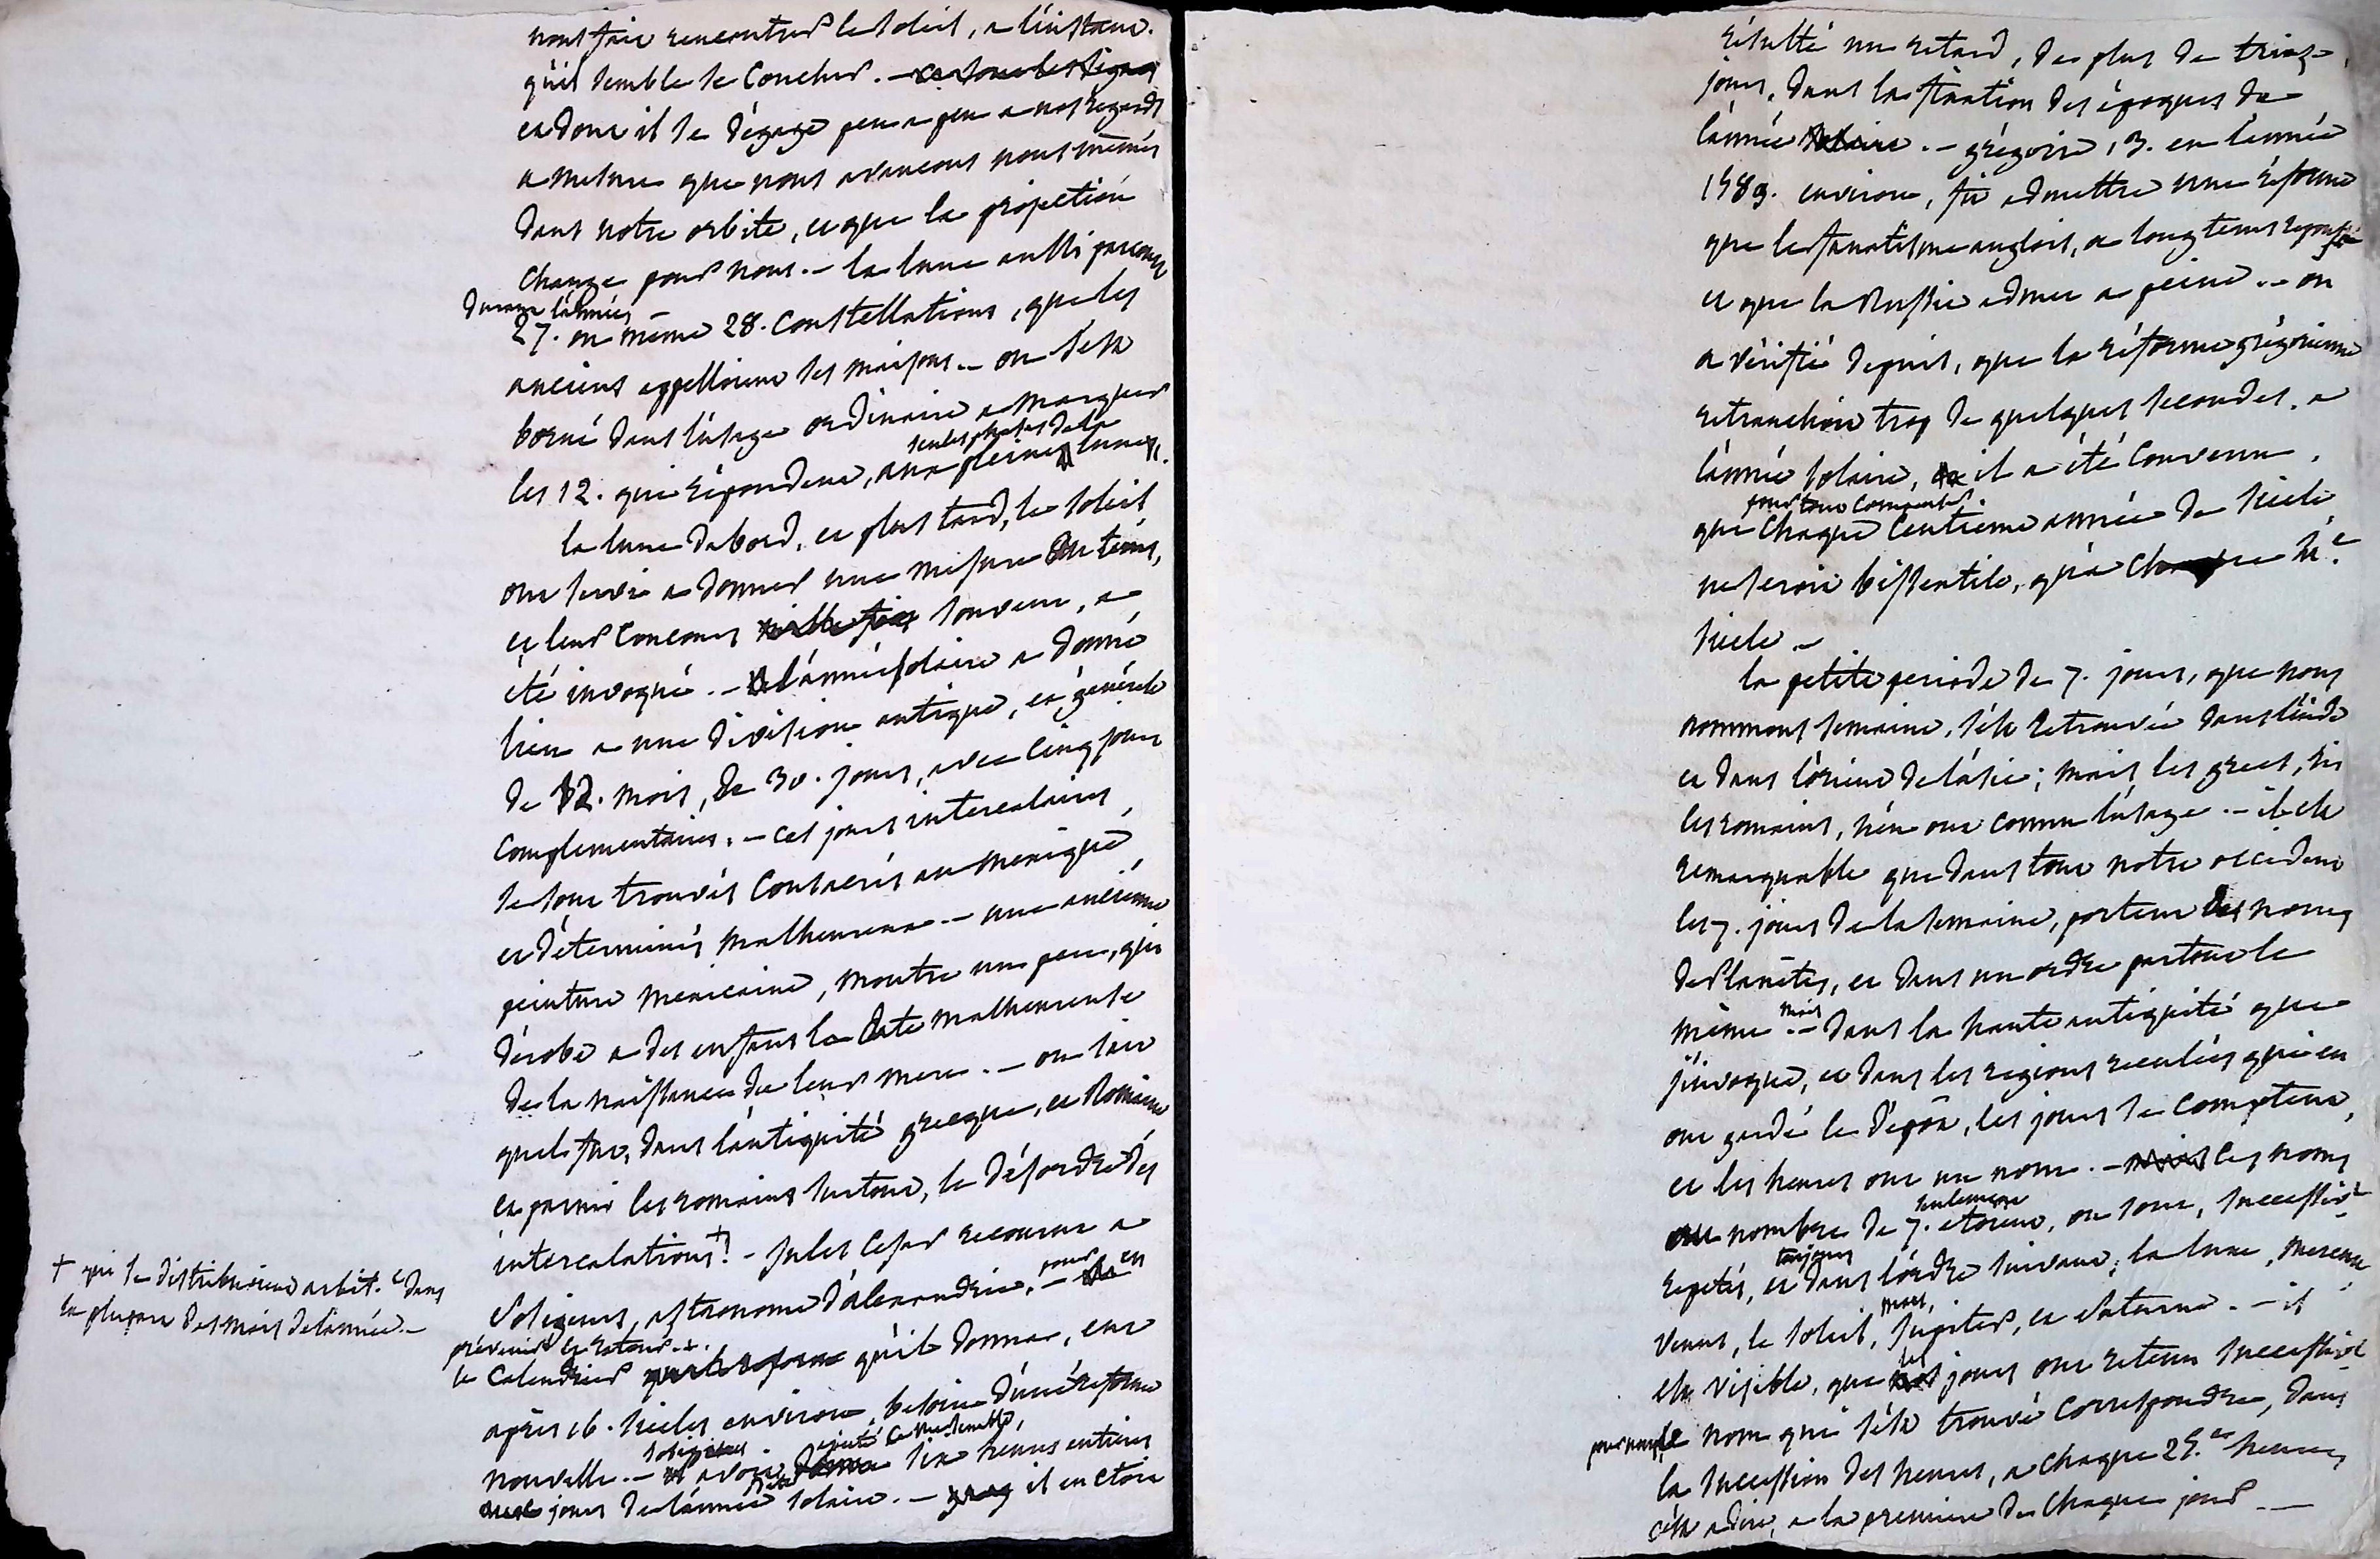 nous fait rencontrer le soleil, a l'instant
qu'il semble se coucher. - ce sont les signes
et dont il se dégage peu a peu a nos regards
a mesure que nous avancons nous mêmes
dans notre orbite, et que la projection
change pour nous. - la lune aussi parcourt
durant l'année
27. ou même 28. constellations, que les
anciens appelloient ses maisons. - on s'est
borné dans l'usage ordinaire a marquer
les 12. qui répondent, aux pleines lunes.
seules phases de la
la lune d'abord, et plus tard, le soleil
ont servi a donner une mesure du tems,
et leur concours souvent, a
été invoqué. - l'année solaire a donné
lieu a une division antique, et générale
de 12. mois, de 30. jours, avec cinq jours
complementaires. - ces jours intercalaires,
se sont trouvés consacrés au mexique,
et déterminés malheureux. - une ancienne
peinture mexicaine, montre un pere, qui
dérobe a des enfans la date malheureuse
de la naissance de leur mere. - on sait
quel fut, dans l'antiquité grecque, et Romaine
et parmi les romains surtout, le désordre des
intercalations +! - jules Cesar recourut a
+ qui se distribuoient arbit.t dans
la plupart des mois de l'année. -
Sosigenes, astronome d'alexandrie, - pour en
prévenir le retour. +.
le Calendrier qu'il donna, eut
après 16. siecles environ, besoin d'une réforme
nouvelle. - Sosigenes avoit ajouté six heures entieres
aux jours de l'année solaire. - il en etoit
résulté un retard, de plus de treize
jours, dans la fixation des époques de
l'année solaire. - grégoire 13. en l'année
1589. environ, fit admettre une réforme
que le fanatisme anglois, a longtems repoussée
et que la Russie admet a peine. - on
a vérifié depuis, que la réforme grégorienne
retranchoit trop de quelques secondes, a
l'année solaire, il a été convenu,
pour tout compenser.
que chaque centieme année de siecle
ne seroit bissextile, qu'a chaque 4.e
siecle. -
la petite periode de 7. jours, que nous
nommons semaine, s'est retrouvée dans l'inde
et dans l'orient de l'asie; mais les grecs, ni
les romains, n'en ont connu l'usage. - il est
remarquable que dans tout notre occident
les 7. jours de la semaine, portent des noms
de Planetes, et dans un ordre partout le
même. - mais dans la haute antiquité que
j'invoque, et dans les regions reculées qui en
ont gardé le dépôt, les jours se comptent,
et les heures ont un nom. - mais ces noms
au nombre de 7. seulement etoient, ou sont, successiv.t
repetés, et toujours dans l'ordre suivant; la lune, mercure
venus, le soleil, mars, Jupiter, et Saturne. - il
est visible, que les jours ont retenu successiv.t
pour nom, le nom qui s'est trouvé correspondre, dans
la succession des heures, a chaque 25.e heure,
c'est a dire, a la premiere de chaque jour. -